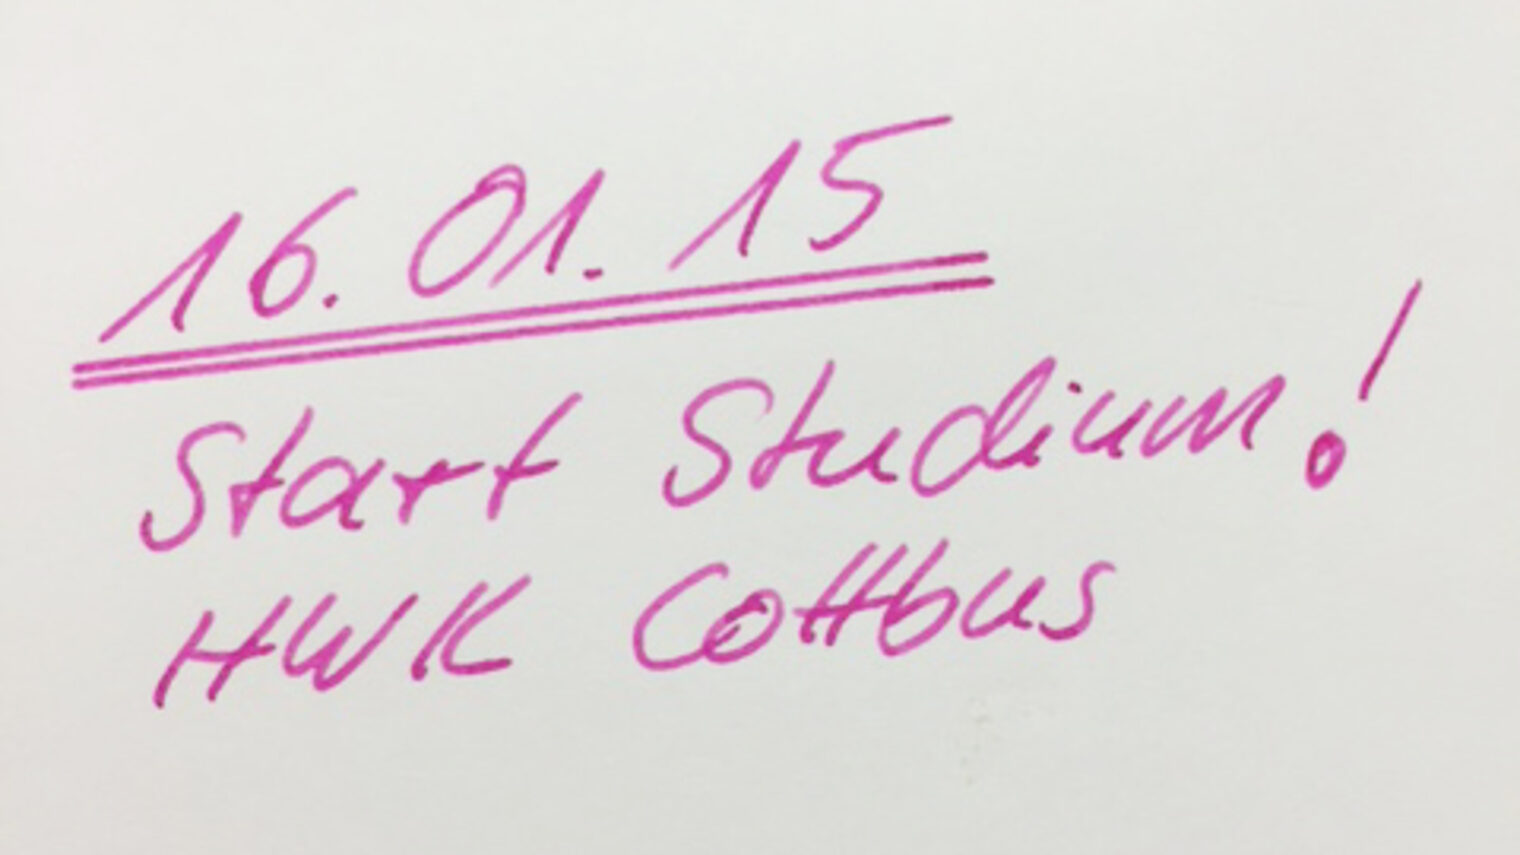 16. 01. 15
Start Studium!
HWK Cottbus